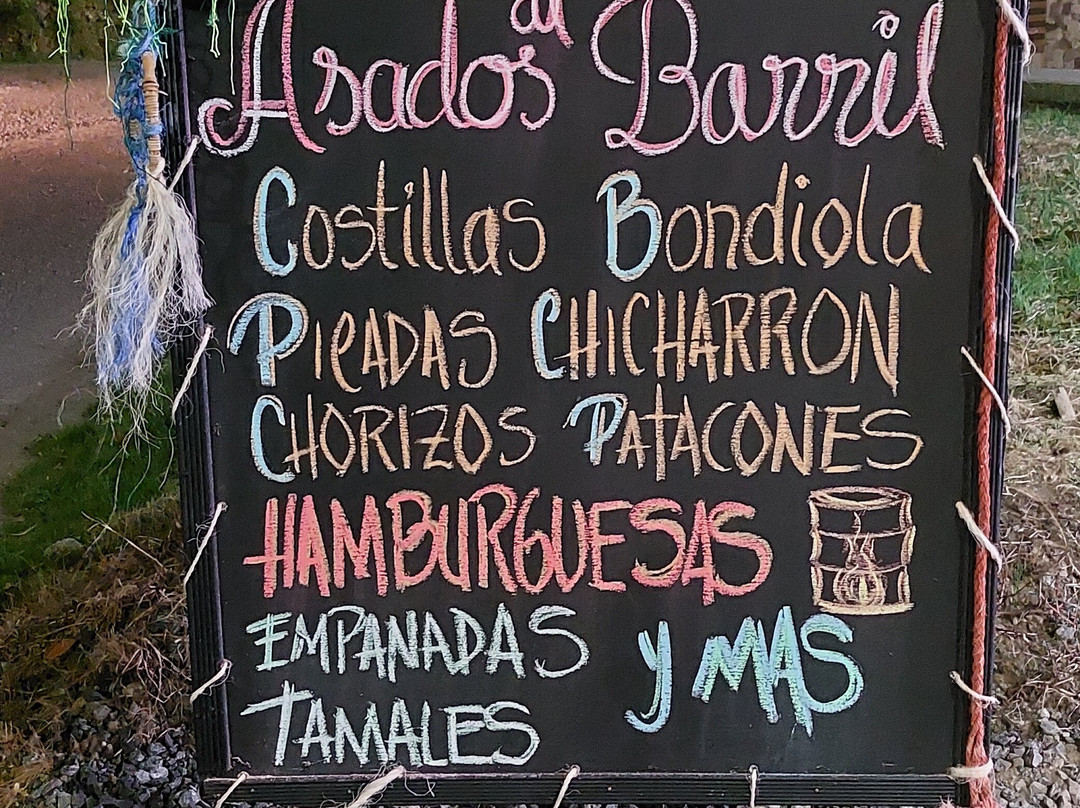 Asados al Barril
Costillas Bondiola
PICADAS CHICHARRON
CHORIZOS PATACONES
HAMBURGUESAS
EMPANADAS Y MAS
TAMALES